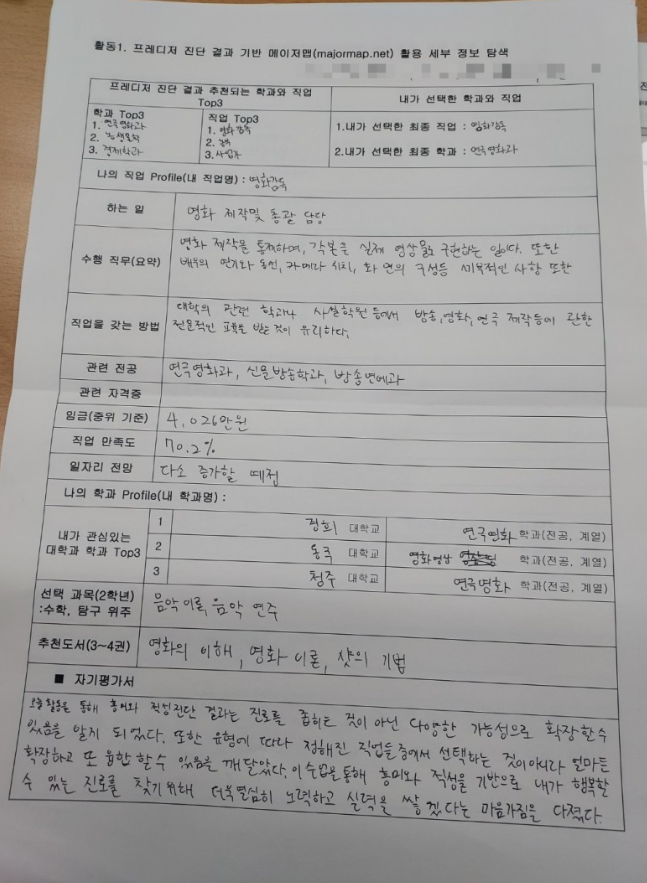 활동1. 프레디저 진단 결과 기반 메이저맵(majormap.net) 활용 세부 정보 탐색
프레디저 진단 결과 추천되는 학과와 직업 Top3
내가 선택한 학과와 직업
학과 Top3
1. 연극영화과
3. 경제학과
직업 Top3
1. 영화감독
2.
3. 사업가
1.내가 선택한 최종 직업 : 영화감독
2.내가 선택한 최종 학과 : 연극영화과
나의 직업 Profile(내 직업명) : 영화감독
하는 일
영화 제작및 총괄 담당
수행 직무(요약)
영화 제작을 통제하며, 각본을 실제 영상물로 구현하는 일이다. 또한
배우의 연기와 동선, 카메라 위치, 화면의 구성등 세부적인 사항 또한
직업을 갖는 방법
대학의 관련 학과나 사설학원등에서 방송,영화,연극 제작등에 관한
전문적인 교육을 받는것이 유리하다.
관련 전공
연극영화과, 신문방송학과, 방송연예과
관련 자격증
임금(중위 기준)
4,026만원
직업 만족도
70.2%
일자리 전망
다소 증가할 예정
나의 학과 Profile(내 학과명) :
내가 관심있는
대학과 학과 Top3
1 경희 대학교 연극영화 학과(전공, 계열)
2 동국 대학교 영화영상 학과(전공, 계열)
3 청주 대학교 연극영화 학과(전공, 계열)
선택 과목(2학년)
:수학, 탐구 위주
음악이론, 음악 연주
추천도서(3~4권)
영화의 이해, 영화 이론, 샷의 기법
■ 자기평가서
활동을 통해 흥미와 적성진단 결과는 진로를 좁히는 것이 아닌 다양한 가능성으로 확장할수
있음을 알지 되었다. 또한 유형에 따라 정해진 직업들중에서 선택하는 것이아니라 얼마든
확장하고 또 융합할수 있음을 깨달았다. 이수업을통해 흥미와 적성을 기반으로 내가 행복할
수 있는 진로를 찾기위해 더욱열심히 노력하고 실력을 쌓겠다는 마음가짐을 다졌다.